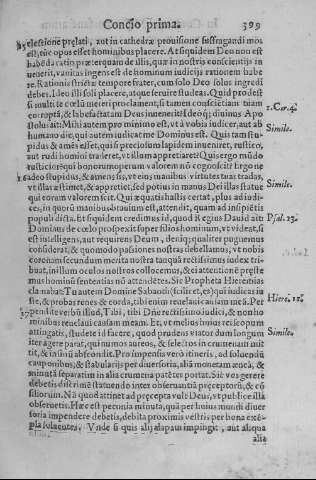 Concio prima. 399
electione prelati, aut in cathedræ prouisione suffragandi mos
est, tuc opus esset hominibus placere. At siquidem Deo non est
habeda ratio præterquam de illis, quæ in nostris conscientijs in
uenerit, vanitas ingens est de hominum iudicijs rationem habe
re. Rationis strictæ tempore frater, cum solo Deo solus ingredi
debes. Ideo illi soli placere, atque seruire studeas. Quid prodest
si multi te cœli meteri proclament, si tamen conscietiam tuam
corruptã, & labefactatam Deus inuenerit? Ideoq; diuinus Apo
stolus ait: Mihi autem pro minimo est, vt à vobis iudicer, aut ab
humano die, qui autem iudicat me Dominus est. Quis tam stu-
pidus & amẽs esset, qui si preciosum lapidem inueniret, rustico,
aut rudi homini traderet, vt illum appretiaret? Quis ergo mũdo
rusticiorq; qui bonorum operum valorem nõ cognoscit? Ergo ne
adeo stupidus, & amens sis, vt eius manibus virtutes tuas tradas,
vt illas æstimet, & appretiet, sed potius in manus Dei illas statue
qui eorum valorem scit. Qui æquatis hastis certat, plus ad iudi-
ces, in quorũ manibus brauium est, attendit, quam ad insipietis
populi dicta. Et siquidem credimus id, quod Regius Dauid ait:
Dominus de cœlo prospexit super filios hominum, vt videat, si
est intelligens, aut requirens Deum, deniq; qualiter pugnemus
considerat, & quomodo passiones nostras debellamus, vt nobis
coronam secundum merita nostra tanquã rectissimus iudex tri-
buat, in illum oculos nostros collocemus, & ei attentione præste
mus hominũ sententia nõ attendẽtes. Sic Propheta Hieremias
clamabat: Tu autem Domine Sabaoth (scilicet, es) qui iudicas iu
ste, & probas renes & corda, tibi enim reuelaui causam meã. Per
pendite verbũ illud, Tibi, tibi Dñe rectissimo iudici, & non ho
minibus reuelaui causam meam. Et, vt melius huius rei scopum
attingatis, studete id facere, quod prudens viator dum longum
iter agere parat, qui nummos aureos, & selectos in crumenam mit
tit, & in sinũ abscondit. Pro impensis verò itineris, ad soluendũ
cauponibus, & stabularijs per diuersoria, aliã monetam æneã, &
minutã separatim in alia crumena patẽter portat. Sic vos gerere
debetis discrimẽ statuendo inter obseruantiã præceptorũ, & cõ
siliorum. Nã quod attinet ad præcepta vult Deus, vt publicè illa
obseruetis. Hæc est pecunia minuta, quã per huius mundi diuer
soria impendere debetis, debita proximis vestris per bona exẽ-
pla soluentes. Vnde si quis alij alapam impingit, aut aliqua
alia
1. Cor. 4.
Simile.
Simile.
Psal. 13.
Hiere. 11.
Simile.